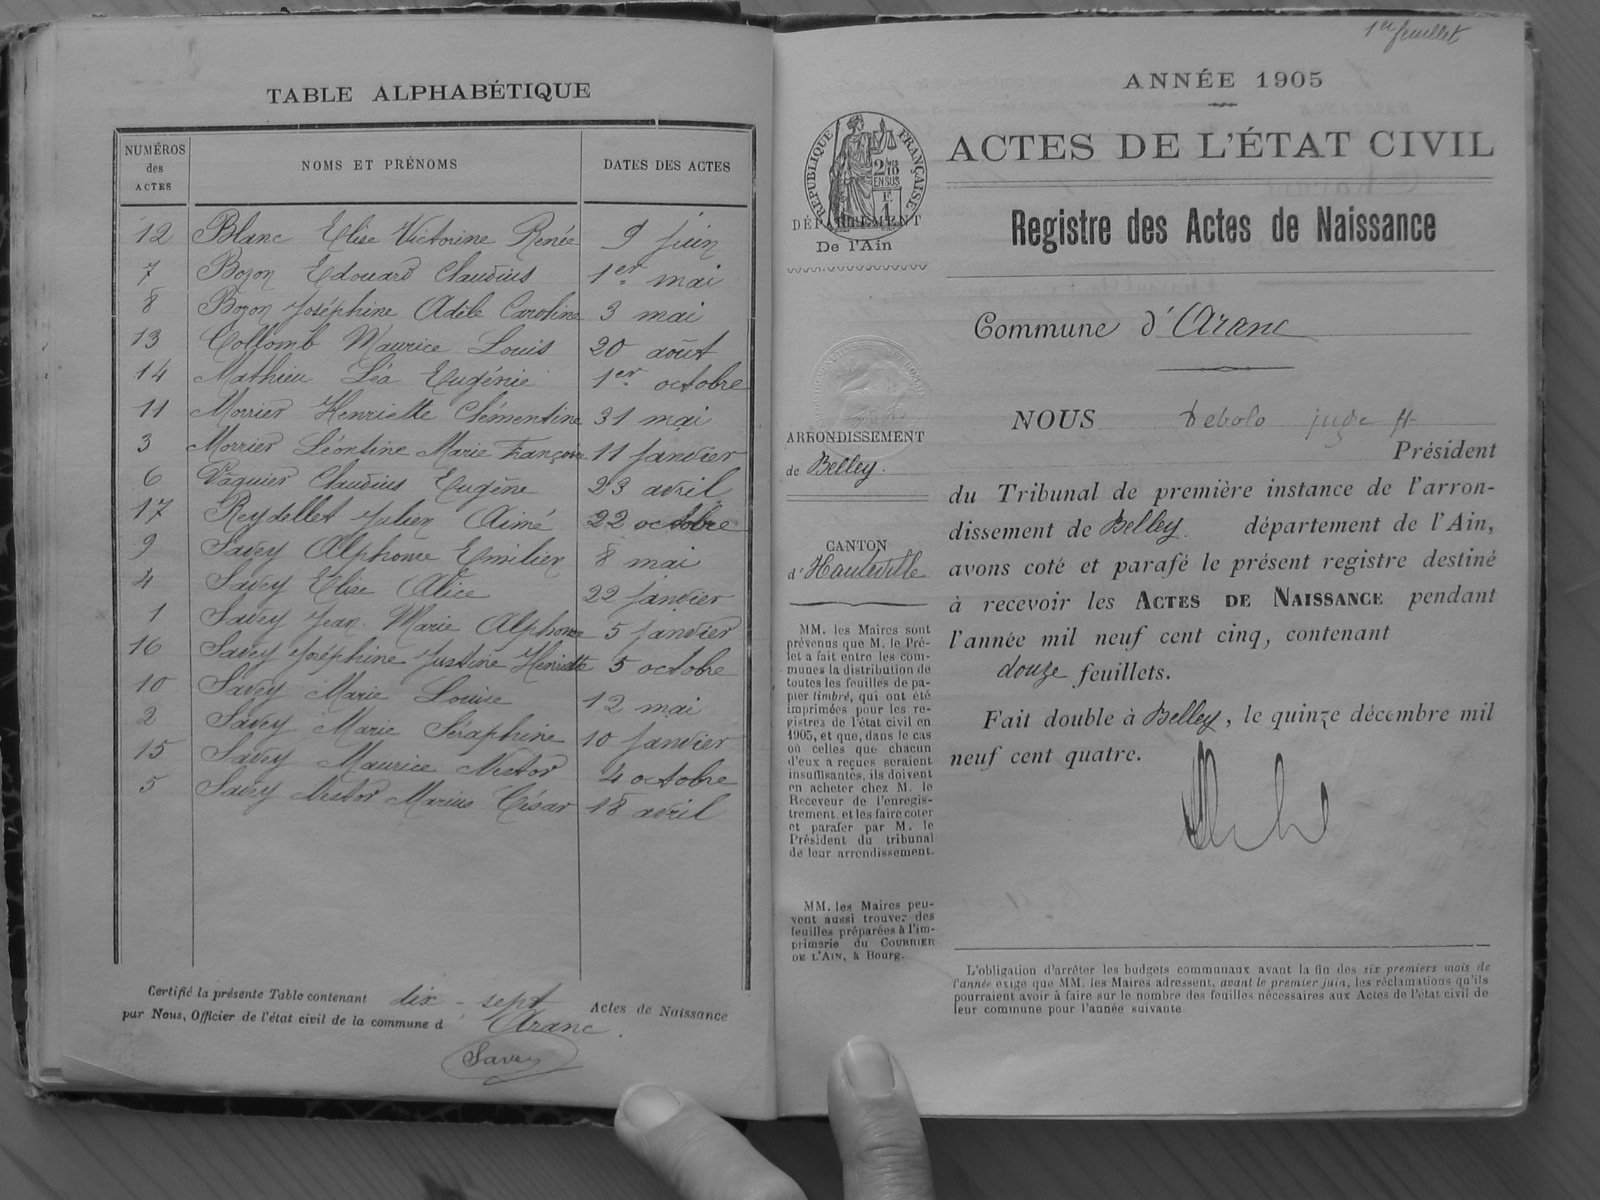 TABLE ALPHABÉTIQUE
NUMÉROS des ACTES
NOMS ET PRÉNOMS
DATES DES ACTES
12 Blanc Elise Victorine Renée 9 juin
7 Bozon Edouard Claudius 1er mai
8 Bozon Joséphine Adèle Caroline 3 mai
13 Collomb Maurice Louis 20 août
14 Mathieu Léa Eugénie 1er octobre
11 Morrier Henriette Clémentine 31 mai
3 Morrier Léontine Marie Françoise 11 janvier
6 Claudius Eugène 23 avril
17 Reydellet Julien Aimé 22 octobre
9 Savey Alphonse Emilien 8 mai
4 Savey Elise Alice 22 janvier
1 Savey Jean Marie Alphonse 5 janvier
16 Savey Joséphine Justine Henriette 5 octobre
10 Savey Marie Louise 12 mai
2 Savey Marie Séraphine 10 janvier
15 Savey Maurice Nestor 4 octobre
5 Savey Nestor Marius César 18 avril
Certifié la présente Table contenant dix-sept Actes de Naissance
par Nous, Officier de l'état civil de la commune d'Aranc.
Savey
1er feuillet
ANNÉE 1905
ACTES DE L'ÉTAT CIVIL
Registre des Actes de Naissance
RÉPUBLIQUE FRANÇAISE
2/10
EN SUS
DÉPARTEMENT
De l'Ain
ARRONDISSEMENT
de Belley.
CANTON
d'Hauteville
MM. les Maires sont
prévenus que M. le Pré-
fet a fait entre les com-
munes la distribution de
toutes les feuilles de pa-
pier timbré, qui ont été
imprimées pour les re-
gistres de l'état civil en
1905, et que, dans le cas
où celles que chacun
d'eux a reçues seraient
insuffisantes, ils doivent
en acheter chez M. le
Receveur de l'enregis-
trement, et les faire coter
et parafer par M. le
Président du tribunal
de leur arrondissement.
MM. les Maires peu-
vent aussi trouver des
feuilles préparées à l'im-
primerie du COURRIER
DE L'AIN, à Bourg.
Commune d'Aranc
NOUS Debolo juge ff
Président
du Tribunal de première instance de l'arron-
dissement de Belley. département de l'Ain,
avons coté et parafé le présent registre destiné
à recevoir les ACTES DE NAISSANCE pendant
l'année mil neuf cent cinq, contenant
douze feuillets.
Fait double à Belley, le quinze décembre mil
neuf cent quatre.
L'obligation d'arrêter les budgets communaux avant la fin des six premiers mois de
l'année exige que MM. les Maires adressent, avant le premier juin, les réclamations qu'ils
pourraient avoir à faire sur le nombre des feuilles nécessaires aux Actes de l'état civil de
leur commune pour l'année suivante